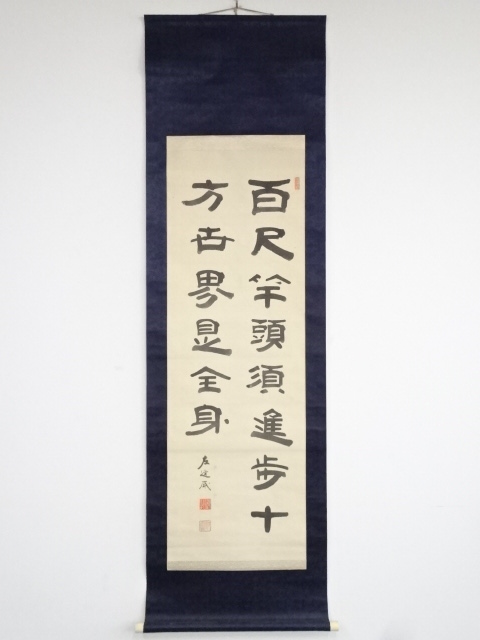 百尺竿頭須進步十
方世界是全身